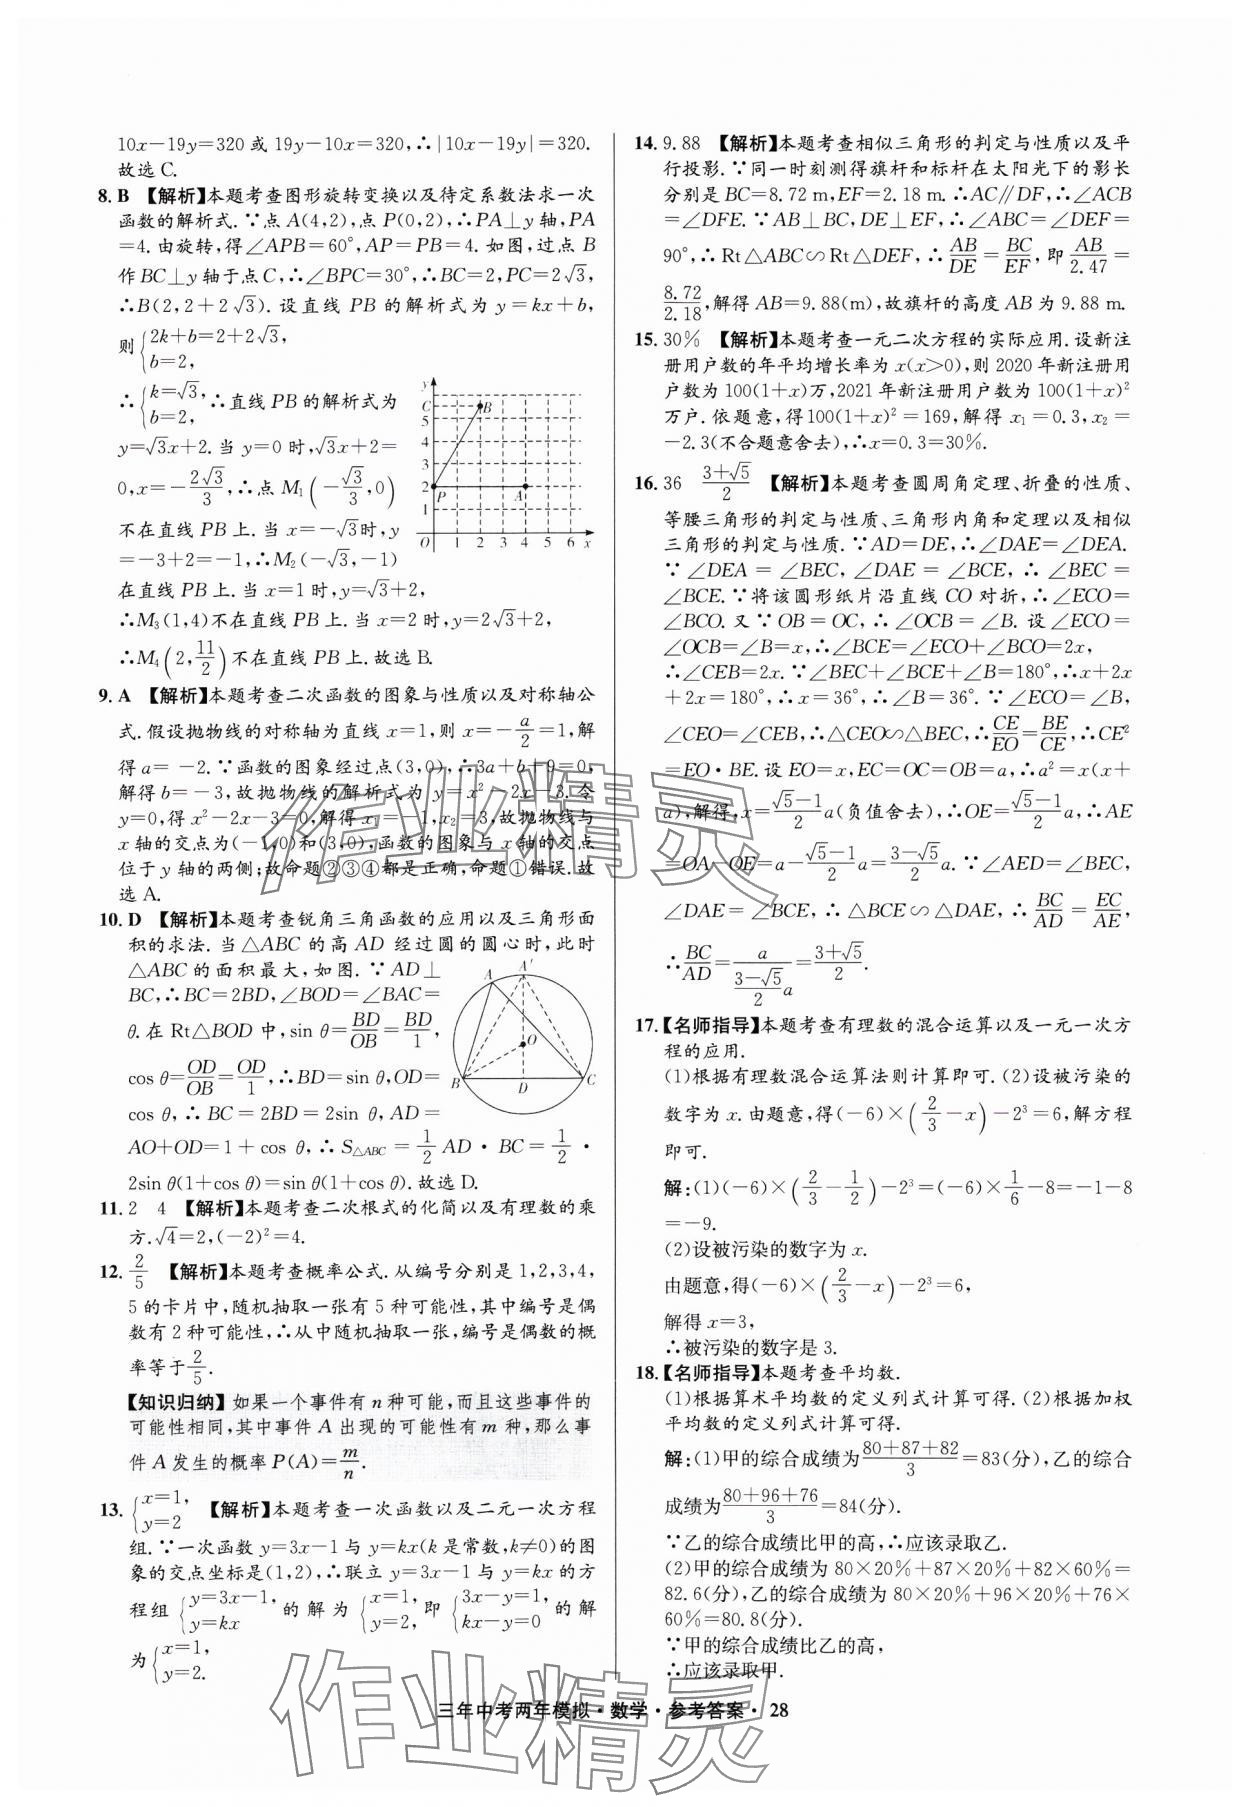 10x-19y=320 或 19y-10x=320,∴|10x-19y|=320.
故选 C.
8. B 【解析】本题考查图形旋转变换以及待定系数法求一次
函数的解析式.∵点 A(4,2),点 P(0,2),∴PA⊥y 轴,PA
=4.由旋转,得∠APB=60°,AP=PB=4. 如图,过点 B
作 BC⊥y 轴于点 C,∴∠BPC=30°,∴BC=2,PC=2√3,
∴B(2,2+2√3). 设直线 PB 的解析式为 y=kx+b,
则{2k+b=2+2√3,
b=2,
∴{k=√3,
b=2,
∴直线 PB 的解析式为
y=√3x+2.当 y=0 时,√3x+2=
0,x=-2√3/3,∴点 M₁(-√3/3,0)
不在直线 PB 上.当 x=-√3时,y
=-3+2=-1,∴M₂(-√3,-1)
在直线 PB 上.当 x=1 时,y=√3+2,
∴M₃(1,4)不在直线 PB 上.当 x=2 时,y=2√3+2,
∴M₄(2,11/2)不在直线 PB 上.故选 B.
y
C
B
5
4
3
2
P
A
1
O 1 2 3 4 5 6 x
9. A 【解析】本题考查二次函数的图象与性质以及对称轴公
式.假设抛物线的对称轴为直线 x=1,则 x=-a/2=1,解
得 a=-2.∵函数的图象经过点(3,0),∴3a+b+9=0,
解得 b=-3,故抛物线的解析式为 y=x²-2x-3.令
y=0,得 x²-2x-3=0,解得 x₁=-1,x₂=3,故抛物线与
x 轴的交点为(-1,0)和(3,0),函数的图象与 x 轴的交点
位于 y 轴的两侧;故命题②③④都是正确,命题①错误.故
选 A.
10. D 【解析】本题考查锐角三角函数的应用以及三角形面
积的求法. 当△ABC 的高 AD 经过圆的圆心时,此时
△ABC 的面积最大,如图.∵AD⊥
BC,∴BC=2BD,∠BOD=∠BAC=
θ.在 Rt△BOD 中,sin θ=BD/OB=BD/1,
cos θ=OD/OB=OD/1,∴BD=sin θ,OD=
cos θ,∴BC=2BD=2sin θ,AD=
AO+OD=1+cos θ,∴S△ABC=1/2 AD·BC=1/2·
2sin θ(1+cos θ)=sin θ(1+cos θ).故选 D.
A
A′
O
B
D
C
11. 2 4 【解析】本题考查二次根式的化简以及有理数的乘
方.√4=2,(-2)²=4.
12. 2/5 【解析】本题考查概率公式.从编号分别是 1,2,3,4,
5 的卡片中,随机抽取一张有 5 种可能性,其中编号是偶
数有 2 种可能性,∴从中随机抽取一张,编号是偶数的概
率等于2/5.
【知识归纳】如果一个事件有 n 种可能,而且这些事件的
可能性相同,其中事件 A 出现的可能性有 m 种,那么事
件 A 发生的概率 P(A)=m/n.
13. {x=1,
y=2
【解析】本题考查一次函数以及二元一次方程
组.∵一次函数 y=3x-1 与 y=kx(k 是常数,k≠0)的图
象的交点坐标是(1,2),∴联立 y=3x-1 与 y=kx 的方
程组{y=3x-1,
y=kx
的解为{x=1,
y=2,
即{3x-y=1,
kx-y=0
的解
为{x=1,
y=2.
14. 9.88 【解析】本题考查相似三角形的判定与性质以及平
行投影.∵同一时刻测得旗杆和标杆在太阳光下的影长
分别是 BC=8.72 m,EF=2.18 m.∴AC∥DF,∴∠ACB
=∠DFE.∵AB⊥BC,DE⊥EF,∴∠ABC=∠DEF=
90°,∴Rt△ABC∽Rt△DEF,∴AB/DE=BC/EF,即AB/2.47=
8.72/2.18,解得 AB=9.88(m),故旗杆的高度 AB 为 9.88 m.
15. 30% 【解析】本题考查一元二次方程的实际应用.设新注
册用户数的年平均增长率为 x(x>0),则 2020 年新注册用
户数为 100(1+x)万,2021 年新注册用户数为 100(1+x)²
万户.依题意,得100(1+x)²=169,解得 x₁=0.3,x₂=
-2.3(不合题意舍去),∴x=0.3=30%.
16. 36 (3+√5)/2 【解析】本题考查圆周角定理、折叠的性质、
等腰三角形的判定与性质、三角形内角和定理以及相似
三角形的判定与性质.∵AD=DE,∴∠DAE=∠DEA.
∵∠DEA=∠BEC,∠DAE=∠BCE,∴∠BEC=
∠BCE.∵将该圆形纸片沿直线 CO 对折,∴∠ECO=
∠BCO.又∵OB=OC,∴∠OCB=∠B.设∠ECO=
∠OCB=∠B=x,∴∠BCE=∠ECO+∠BCO=2x,
∴∠CEB=2x.∵∠BEC+∠BCE+∠B=180°,∴x+2x
+2x=180°,∴x=36°,∴∠B=36°.∵∠ECO=∠B,
∠CEO=∠CEB,∴△CEO∽△BEC,∴CE/EO=BE/CE,∴CE²
=EO·BE.设 EO=x,EC=OC=OB=a,∴a²=x(x+
a),解得,x=(√5-1)/2 a(负值舍去),∴OE=(√5-1)/2 a,∴AE
=OA-OE=a-(√5-1)/2 a=(3-√5)/2 a.∵∠AED=∠BEC,
∠DAE=∠BCE,∴△BCE∽△DAE,∴BC/AD=EC/AE,
∴BC/AD=a/((3-√5)/2 a)=(3+√5)/2.
17.【名师指导】本题考查有理数的混合运算以及一元一次方
程的应用.
(1)根据有理数混合运算法则计算即可.(2)设被污染的
数字为 x.由题意,得(-6)×(2/3-x)-2³=6,解方程
即可.
解:(1)(-6)×(2/3-1/2)-2³=(-6)×1/6-8=-1-8
=-9.
(2)设被污染的数字为 x.
由题意,得(-6)×(2/3-x)-2³=6,
解得 x=3,
∴被污染的数字是 3.
18.【名师指导】本题考查平均数.
(1)根据算术平均数的定义列式计算可得.(2)根据加权
平均数的定义列式计算可得.
解:(1)甲的综合成绩为(80+87+82)/3=83(分),乙的综合
成绩为(80+96+76)/3=84(分).
∵乙的综合成绩比甲的高,∴应该录取乙.
(2)甲的综合成绩为 80×20%+87×20%+82×60%=
82.6(分),乙的综合成绩为 80×20%+96×20%+76×
60%=80.8(分).
∵甲的综合成绩比乙的高,
∴应该录取甲.
三年中考两年模拟·数学·参考答案·28
作业精灵
作业精灵